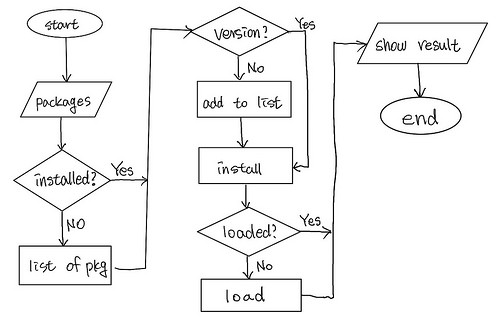 start
packages
installed?
Yes
NO
list of pkg
version?
Yes
No
add to list
install
loaded?
Yes
No
load
show result
end